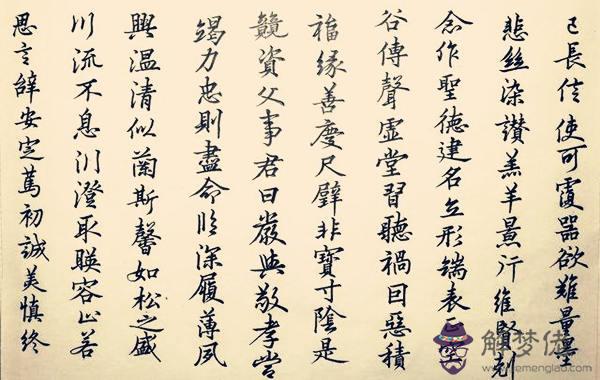 己長信使可覆器欲難量墨
悲絲染讃羔羊景行維賢剋
念作聖德建名立形端表正空
谷傳聲虛堂習聽禍因惡積
福緣善慶尺璧非寶寸陰是
競資父事君曰嚴與敬孝當
竭力忠則盡命臨深履薄夙
興溫清似蘭斯馨如松之盛
川流不息淵澄取暎容止若
思言辭安定篤初誠美慎終
解梦佬